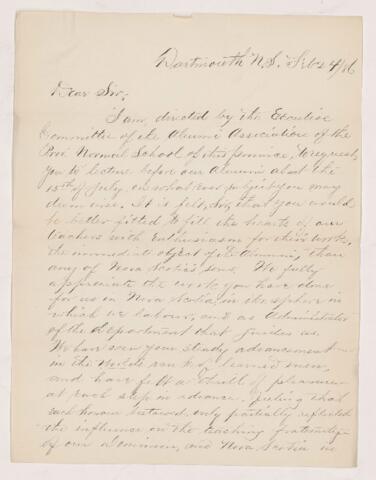 Dartmouth N.S. Feb 4/86
Dear Sir,
I am directed by the Executive
Committee of the Alumni Association of the
Prov. Normal School of this province, to request
you to lecture before our Alumni about the
15th of July, on what ever subject you may
deem wise. It is felt, Sir, that you would
be better fitted to fill the hearts of our
teachers with Enthusiasm for their work,
the immediate object of the Alumni, than
any of Nova Scotia's sons. We fully
appreciate the work you have done
for us in Nova Scotia, in the sphere in
which we labour, and as Administrator
of the Department that guides us.
We have seen your steady advancement
in the ranks of learned men,
and have felt a thrill of pleasure
at each step in advance, feeling that
each honour bestowed, only partially reflected
the influence on the teaching fraternity
of our Dominion, and Nova Scotia in